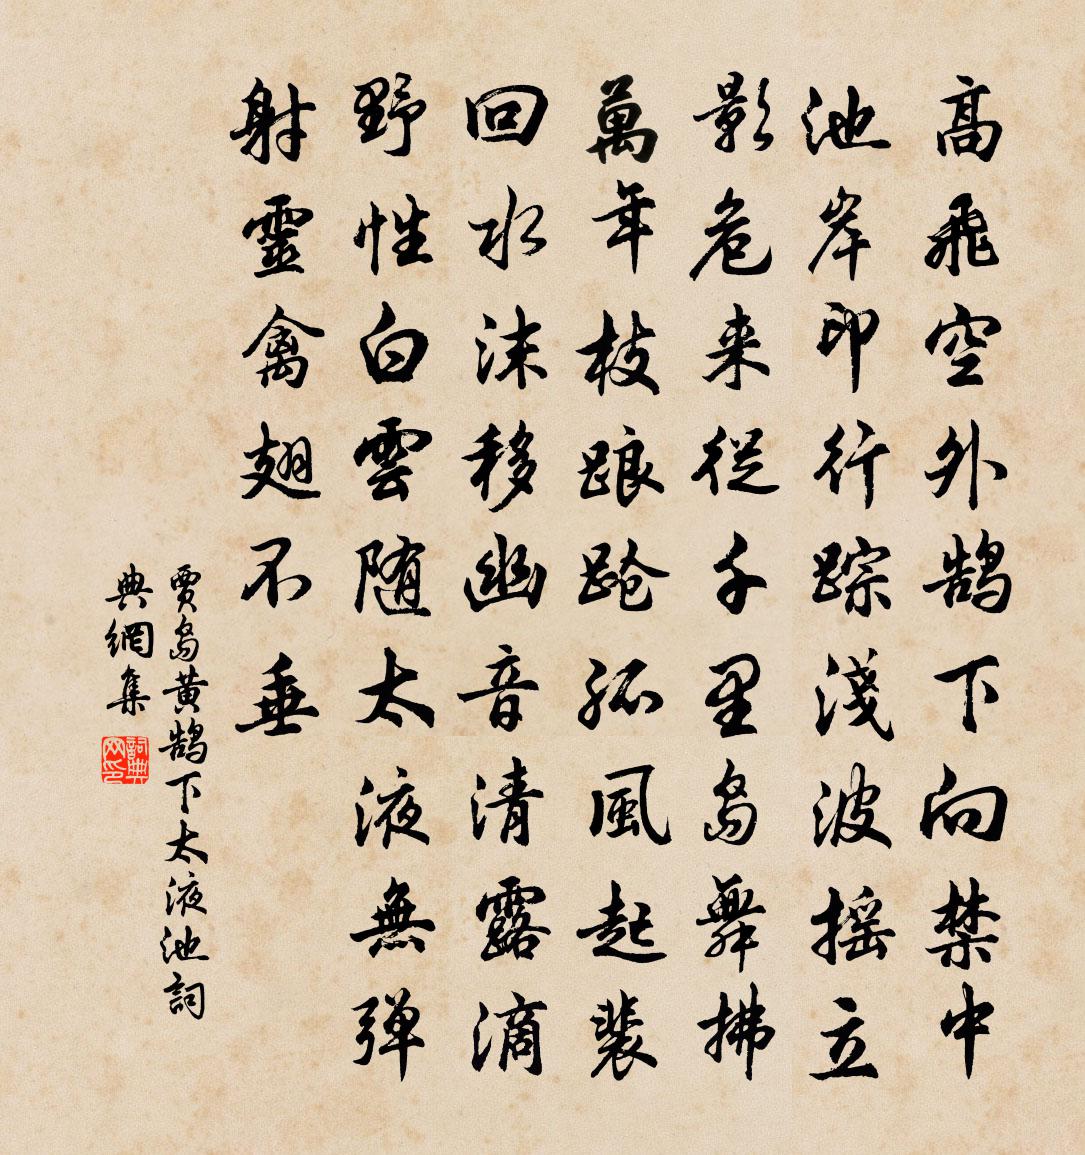 高飛空外鵠下向禁中
池岸印行踪淺波摇立
影危来從千里島舞拂
萬年枝踉跄孤風起裴
回水沫移幽音清露滴
野性白雲随太液無弹
射靈禽翅不垂
賈島黄鵠下太液池詞
典網集
詞典
网印